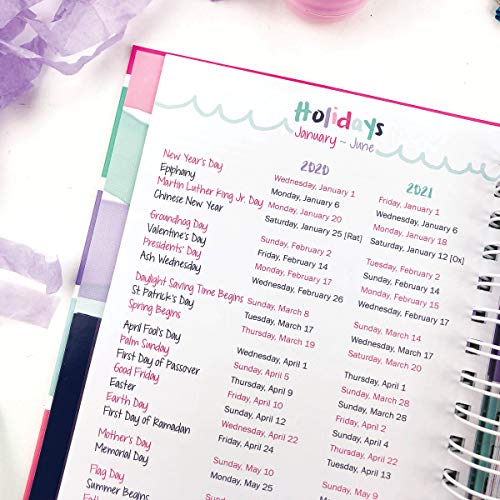 Holidays
January ~ June
2020 2021
New Year's Day Wednesday, January 1 Friday, January 1
Epiphany Monday, January 6 Wednesday, January 6
Martin Luther King Jr. Day Monday, January 20 Monday, January 18
Chinese New Year Saturday, January 25 [Rat] Saturday, January 12 [Ox]
Groundhog Day Sunday, February 2 Tuesday, February 2
Valentine's Day Friday, February 14 Sunday, February 14
Presidents' Day Monday, February 17 Monday, February 15
Ash Wednesday Wednesday, February 26 Wednesday, February 17
Daylight Saving Time Begins Sunday, March 8 Sunday, March 14
St Patrick's Day Tuesday, March 17 Wednesday, March 17
Spring Begins Thursday, March 19 Saturday, March 20
April Fool's Day Wednesday, April 1 Thursday, April 1
Palm Sunday Sunday, April 5 Sunday, March 28
First Day of Passover Thursday, April 9 Sunday, March 28
Good Friday Friday, April 10 Friday, April 2
Easter Sunday, April 12 Sunday, April 4
Earth Day Wednesday, April 22 Thursday, April 22
First Day of Ramadan Friday, April 24 Tuesday, April 13
Mother's Day Sunday, May 10 Sunday, May
Memorial Day Monday, May 25 Monday, May
Flag Day Sunday,
Summer Begins